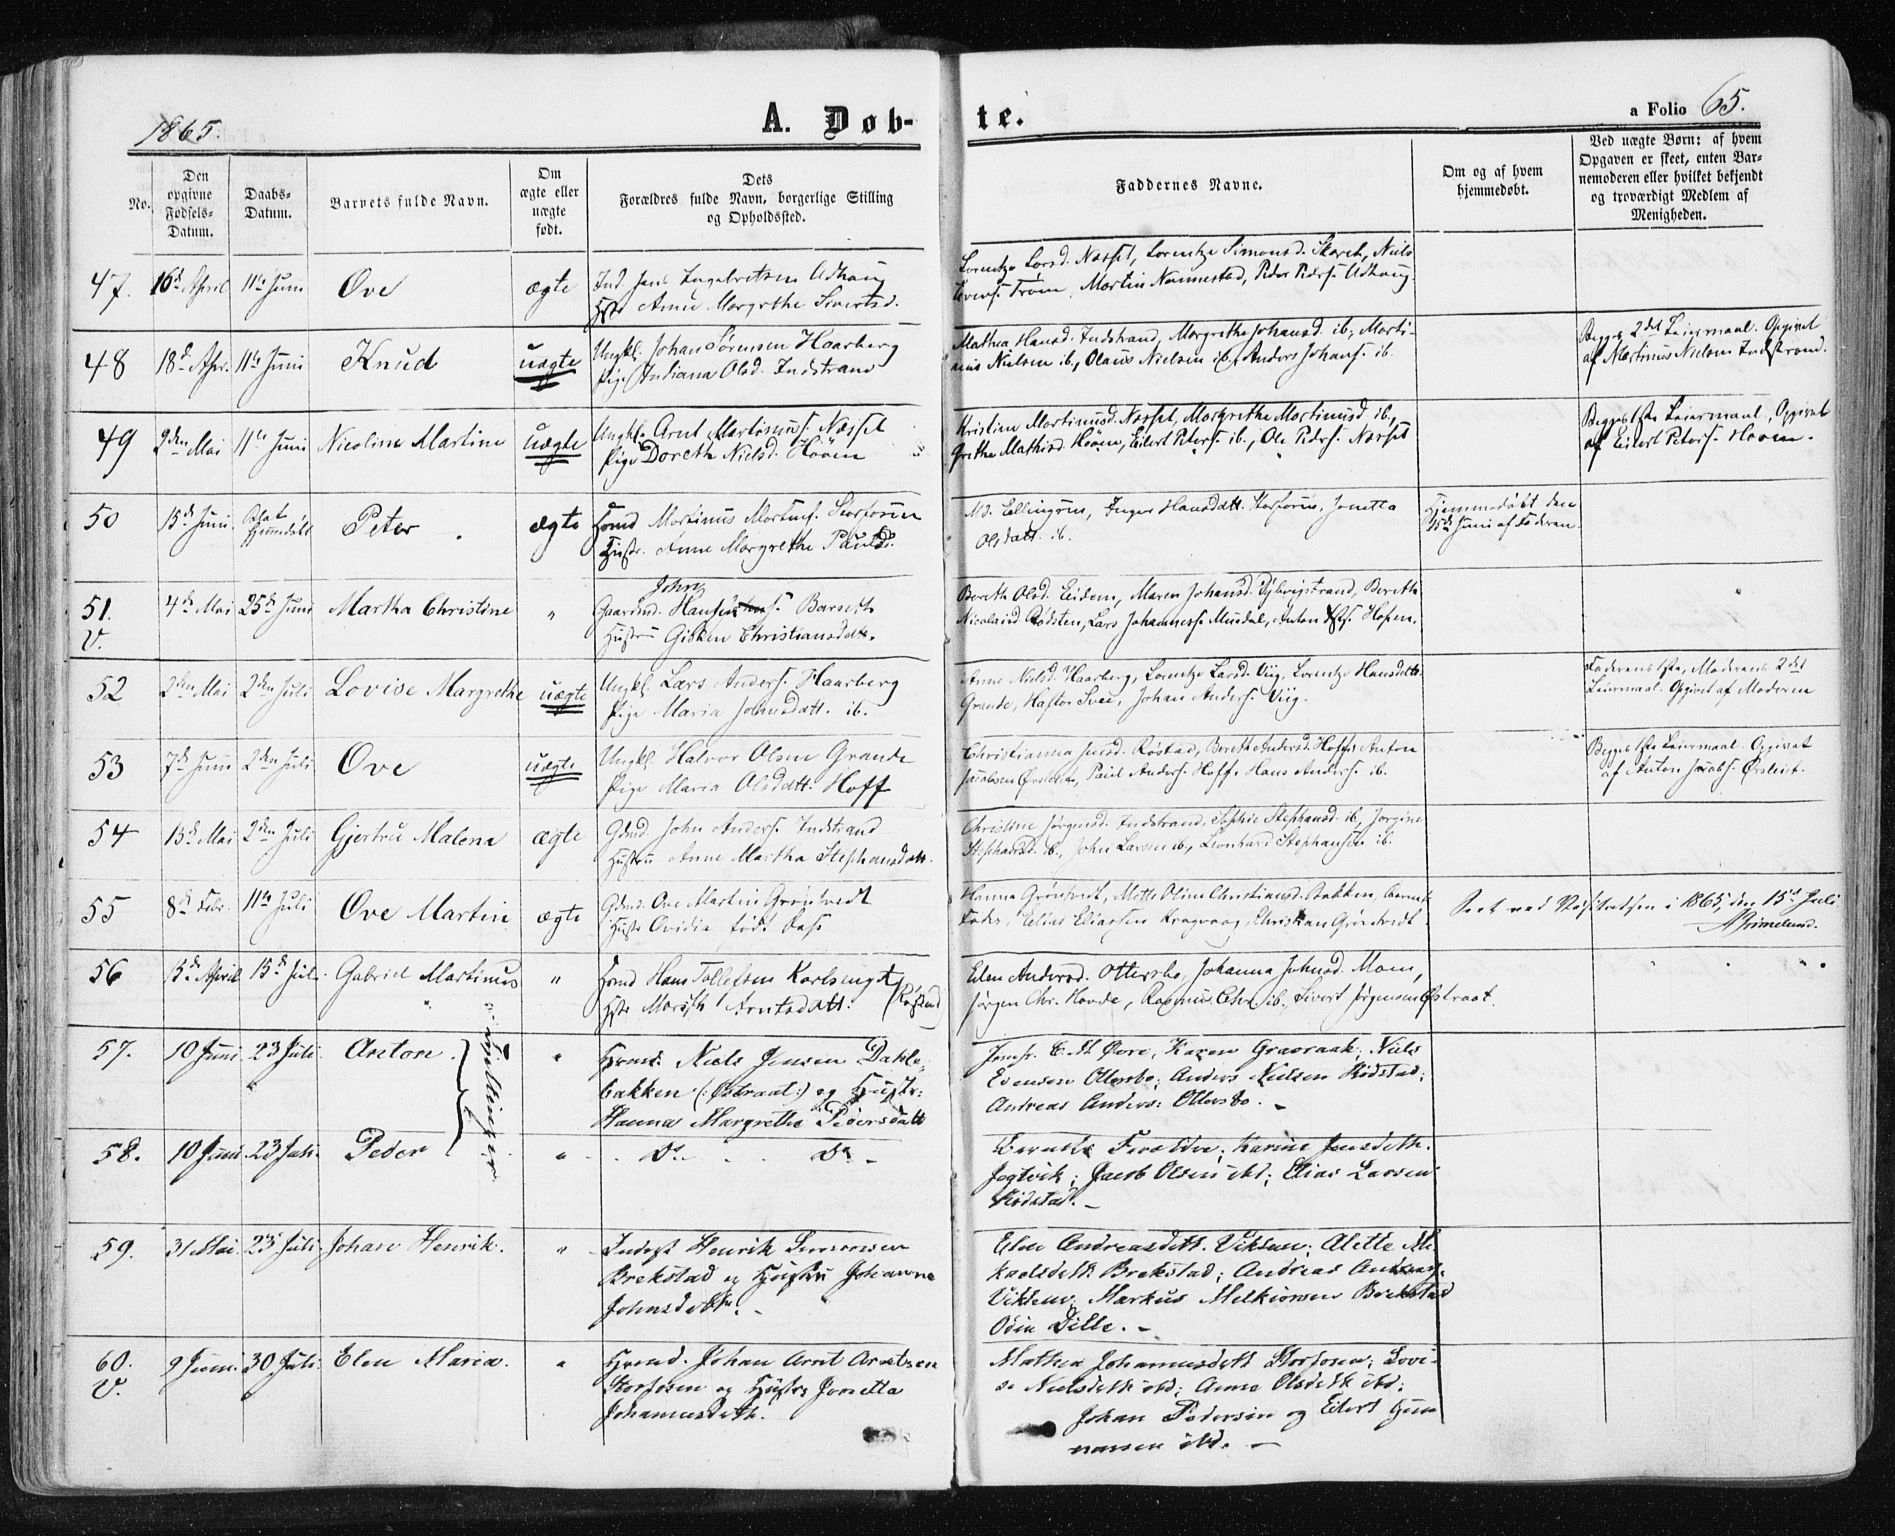 1865.
A. Døb-
te.
a Folio 65.
No.
Den opgivne Fødsels-Datum.
Daabs-Datum.
Barnets fulde Navn.
Om ægte eller uægte født.
Dets Forældres fulde Navn, borgerlige Stilling og Opholdssted.
Faddernes Navne.
Om og af hvem hjemmedøbt.
Ved uægte Børn: af hvem Opgaven er skeet, enten Barnemoderen eller hvilket bekjendt og troværdigt Medlem af Menigheden.
47. 16de April 11te Juni Ove ægte Ind Jens Ingebretsen Udhaug
Hstr Anne Margrethe Sivertsd.
Lorentze Larsd. Næsset, Lorentze Simonsd. Skaret, Niels
Martin Nannestad, Peder Peders. Udhaug.
48 18de Apr. 11te Juni Knud uægte Ungkl. Johan Sørensen Haarberg
Pige Indiana Olsd. Indstrand
Mathea Hansd. Indstrand, Margrethe Johansd. ib, Marti-
nus Nielsen ib, Olaus Nielsen ib, Anders Johans. ib.
Begges 2det Leiermaal. Opgivet
af Martinus Nielsen Indstrand.
49 2den Mai 11te Juni Nicoline Martine uægte Ungkl. Arnt Martinus. Næsset
Pige Doreth Nielsd. Hoven
Kristine Martinusd. Næsset, Margrethe Martinusd. ib,
Grethe Mathisd. Hoven, Eilert Peters. ib., Ole Peders. Næsset
Begges 1ste Leiermaal, Opgivet
af Eilert Peters. Hoven.
50 15de Juni Peter ægte Hmd Martinus Martins. Storfosen
Hustr. Anne Margrethe Paulsd.
Md. Ellingren, Inger Hansdatt. Storfosen, Jonetta
Olsdatt. ib.
Hjemmedøbt den
15de Juni af Faderen.
51. V. 4de Mai 25de Juni Martha Christine " Gaardmd. Hans Johns. Barseth
Hustru Gisken Christiansdatt.
Bereth Olsd. Eidem, Maren Johansd. , Bereth
Nicolaisd Rødsten, Lars Johanness. Musdal, Anton Hofen.
52 2den Mai 2den Juli Lovise Margrethe uægte Ungkl. Lars Anders. Haarberg
Pige Maria Johnsdatt. ib.
Anne Nielsd. Haarberg, Lorentze Larsd. Viig, Lorentze Hansdatt.
Grande, Haftor Svee, Johan Anders. Viig.
Faderens 1ste, Moderens 2det
Leiermaal. Opgivet af Moderen
53 7de Juni 2den Juli Ove uægte Ungkl. Halvor Olsen Grande
Pige Maria Olsdatt. Hoff
Christianna Røstad, Bereth Andersd. Hoff, Anton
Jacobsen Paul Anders. Hoff, Hans Anders. ib.
Begges 1ste Leiermaal. Opgivet
af Anton Jacobs.
54 13de Mai 2den Juli Gjertru Malena ægte Gdmd. John Anders. Indstrand
Hustru Anne Martha Stephansdatt.
Christine Jørgensd. Indstrand, Sophie Stephansd. ib, Jorgine
Stephansd. ib., John Larsen ib, Leonhard Stephansen ib.
55 8de Febr. 11te Juli Ove Martin ægte Gdmd. Ove Martin Grøntvedt
Hustr Ovidia født Dass
Hanna Grøntvedt, Mette Oline Christiansd. Bakken, Barnets
Fader, Elias Eliassen Kragvaag, Christian Grøntvedt
Seet ved Visitatsen i 1865, den 15de Juli
AGrimelund.
56 15de April 15de Juli Gabriel Martinus " Hmd Hans Tollefsen Karlseng
Hstr. Marith Arntsdatt. (Røstad)
Elen Andersd. Ottersbo, Johanna Johnsd. Moen,
Jørgen Chr. Hovde, Rasmus Chr. ib, Sivert Jørgensen Østraat.
57. 10 Juni 23 Juli. Anton. Tvillinger " Hmd. Niels Jensen Dahle-
bakken (: Østraat :) og Hustr:
Hanna Margrethe Pedersdatt
Jomfr. C. M. Øvre, Karen Graaraak; Niels
Evensen Ottersbo; Anders Nielsen Rødstad;
Andreas Anders: Ottersbo. –
58. 10 Juni 23 Juli. Peder " Do. Do. –
Barnets Forældre; Karine Jensdeth.
Jøglvik; Jacob Olsen ibd; Elias Larsen
Rødstad. –
59. 31 Mai. 23 Juli Johan Henrik. " Inderst Henrik Sivertsen
Brekstad og Hustru Johanna
Johnsdeth. –
Elen Andreasdett. Viklem; Alette Mi-
kaelsdeth Brekstad; Andreas Andreas.
Viklem; Markus Melkiorsen Brekstad
Odin Dille. –
60. V. 9 Juni. 30 Juli. Elen Maria. " Hmd. Johan Arnt Arntsen
Storfosen og Hustr: Jonetta
Johannesdeth.
Mathea Johannesdett Storfosen; Lovi-
se Nielsdeth ibd; Anna Olsdeth ibd;
Johan Pedersen og Eilert Gun-
narsen ibd. –